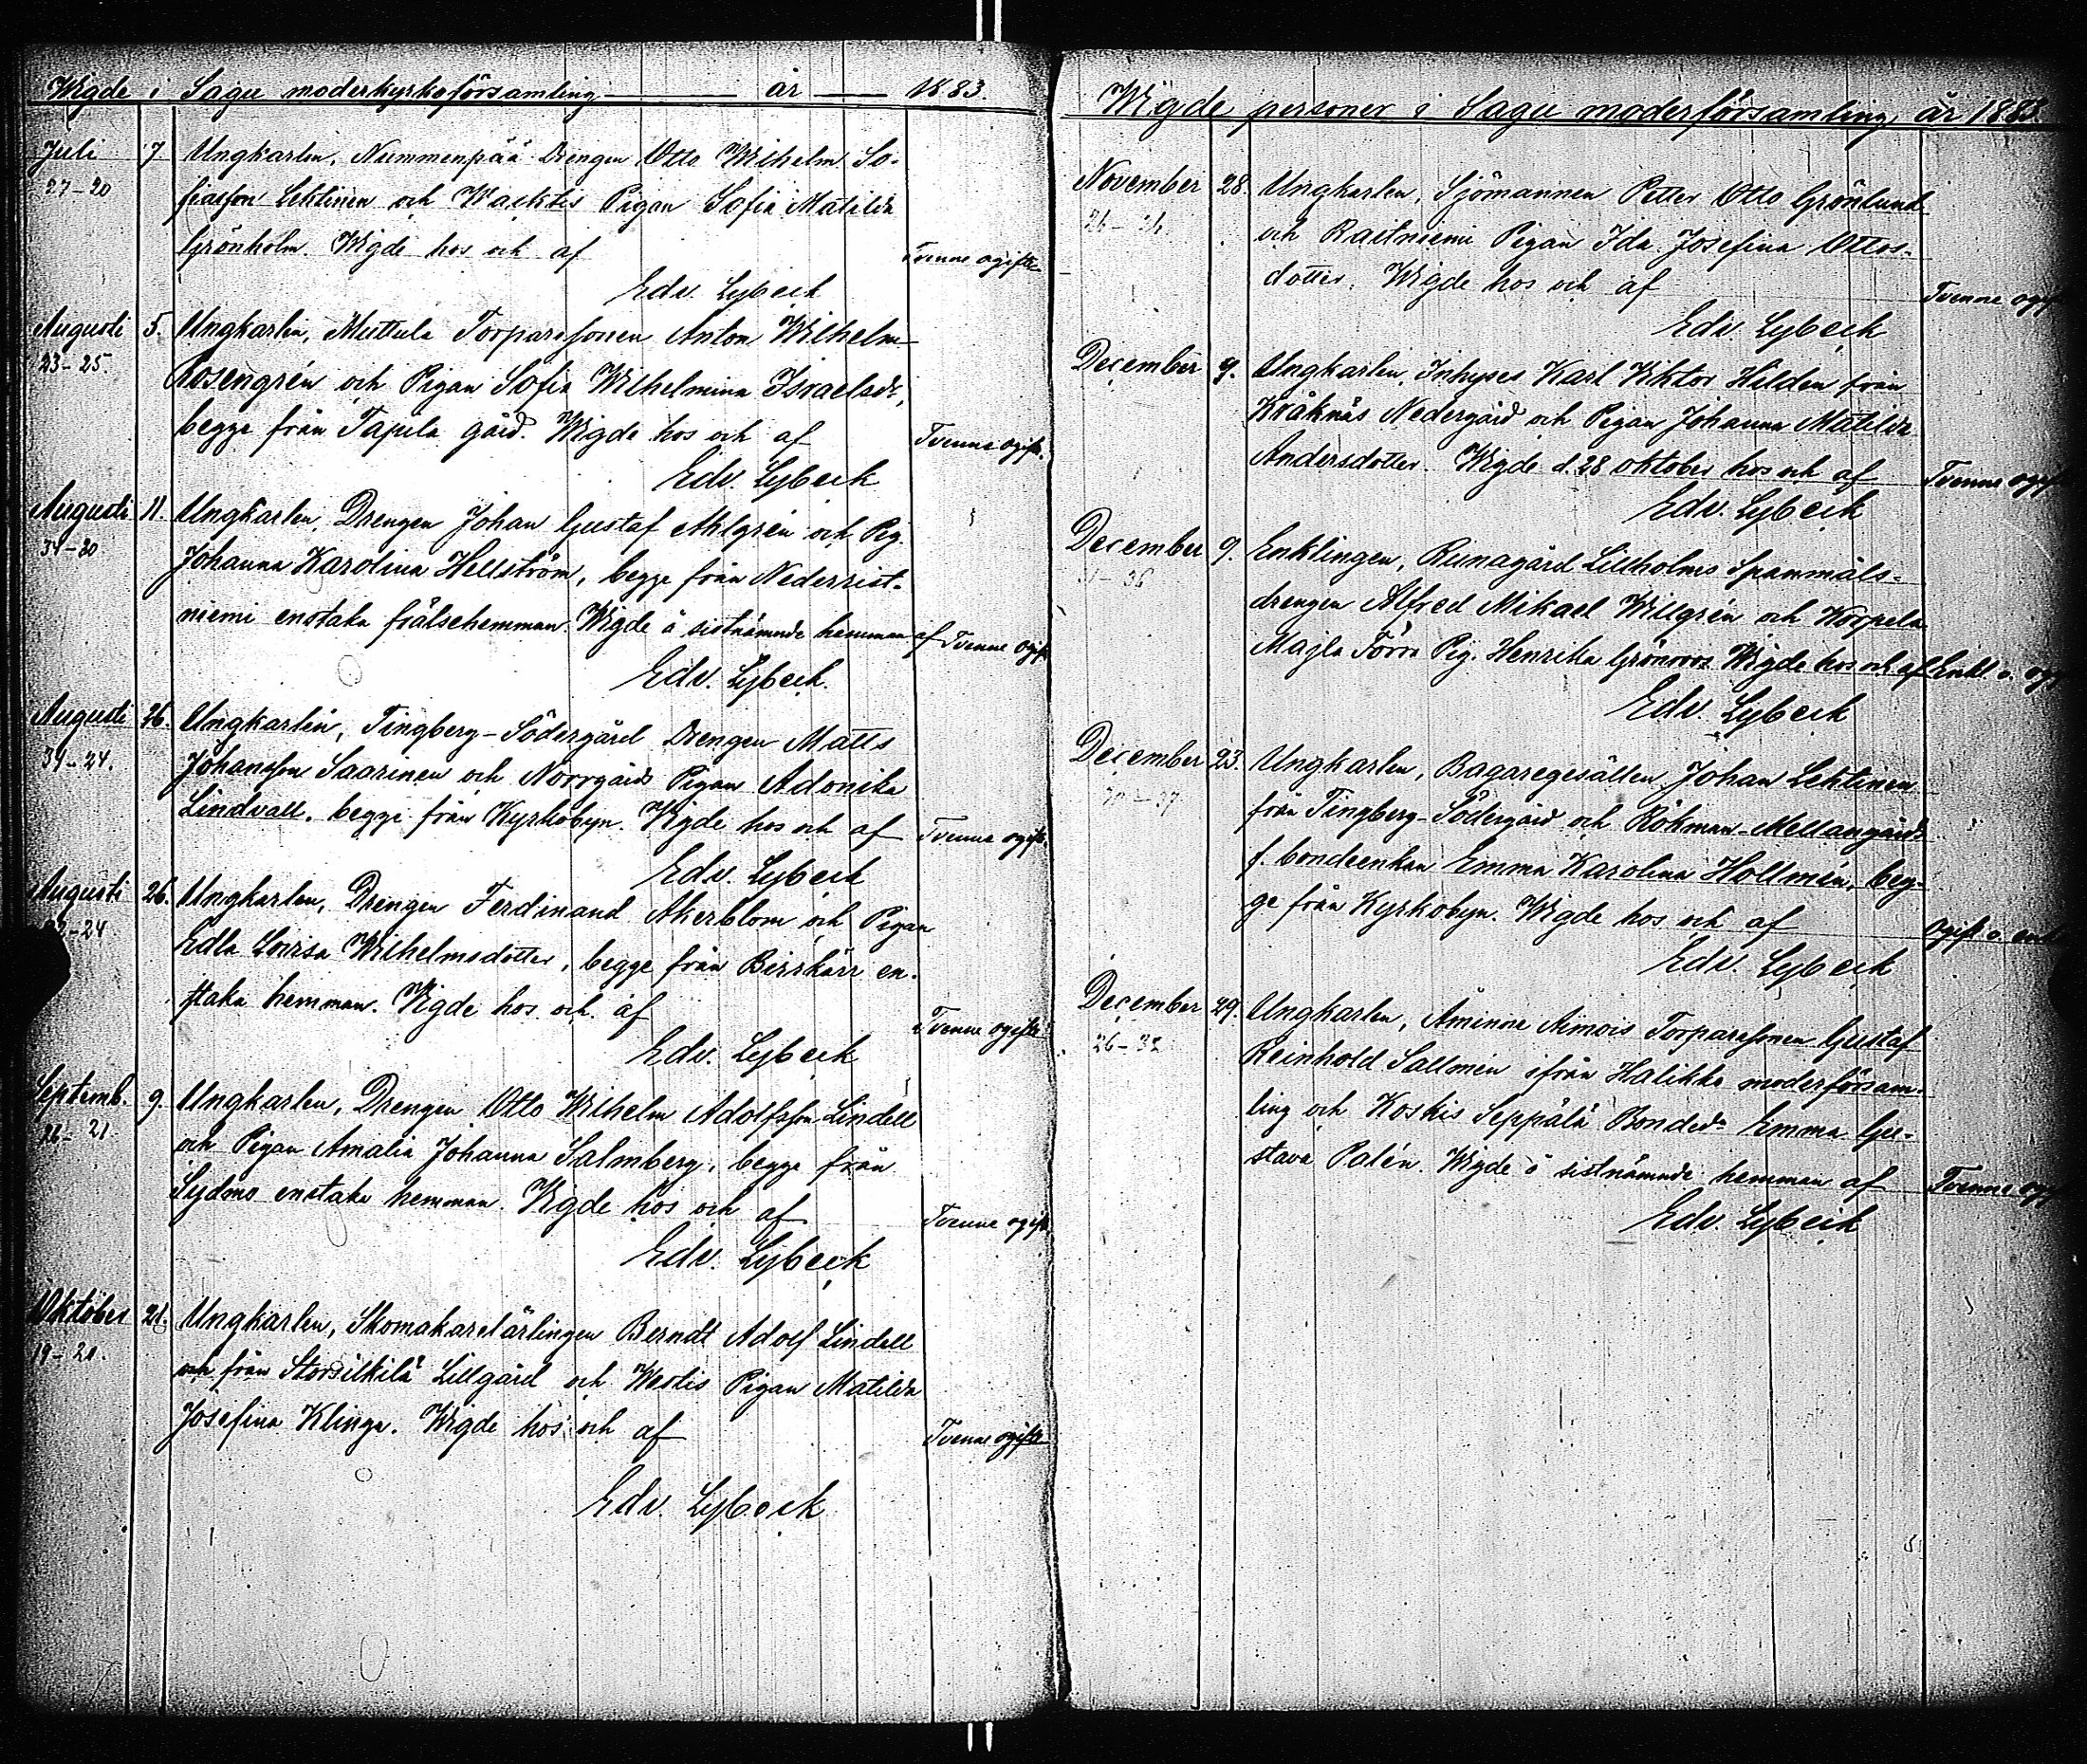 Wigde i Sagu moderkyrkoförsamling år 1883.
Juli 7 Ungkarlen, Nummenpää Drengen Otto Wilhelm So-
27-20 fiasson Lehtinen och Wacktis Pigan Sofia Matilda
Grönholm. Wigde hos och af Tvenne ogifte
Edv. Lybeck
Augusti 5. Ungkarlen, Muttula Torparesonen Anton Wilhelm
23-25. Rosengrén och Pigan Sofia Wilhelmina Israelsdr,
begge från Tapila gård. Wigde hos och af Tvenne ogift.
Edv. Lybeck
Augusti 11. Ungkarlen, Drengen Johan Gustaf Ahlgrén och Pig.
34-20 Johanna Karolina Hellström, begge från Nederrist-
niemi enstaka frälsehemman. Wigde å sistnämnde hemman af Tvenne ogift
Edv. Lybeck.
Augusti 26. Ungkarlen, Tingberg-Södergård Drengen Matts
34-24. Johansson Saarinen och Norrgårds Pigan Adonika
Lindvall, begge från Kyrkobyn. Wigde hos och af Tvenne ogift.
Edv. Lybeck
Augusti 26. Ungkarlen, Drengen Ferdinand Akerblom och Pigan
22-24 Edla Lovisa Wilhelmsdotter, begge från Birskärr en-
staka hemman. Wigde hos och af Tvenne ogifte
Edv. Lybeck
Septemb. 9. Ungkarlen, Drengen Otto Wilhelm Adolfsson Lindell
26-21 och Pigan Amalia Johanna Salmberg, begge från
Sydmo enstaka hemman. Wigde hos och af Tvenne ogift
Edv. Lybeck
Oktober 21. Ungkarlen, Skomakarelärlingen Berndt Adolf Lindell
19-21. från Storsilkilä Lillgård och Westis Pigan Matilda
Josefina Klinga. Wigde hos och af Tvenne ogifte
Edv. Lybeck
Wigde personer i Sagu moderförsamling år 1883.
November 28. Ungkarlen, Sjömannen Petter Otto Grönlund
och Raitniemi Pigan Ida Josefina Ottos-
dotter. Wigde hos och af Tvenne ogif
Edv. Lybeck
December 9. Ungkarlen, Inhyses Karl Viktor Hildén från
Kråknäs Nedergård och Pigan Johanna Matilda
Andersdotter. Wigde d. 28 oktober hos och af Tvenne ogif
Edv. Lybeck
December 9. Enklingen, Runagård Lillholms Spannmåls-
drengen Alfred Mikael Willgrén och Koppela
Majla Törrö Pig. Henrika Grönroos. Wigde hos och af Enkl. o. og
Edv. Lybeck
December 23. Ungkarlen, Bagaregesällen Johan Lehtinen
från Tingberg-Södergård och Rökman-Mellangårds
f. bondeenkan Emma Karolina Hollmén, beg-
ge från Kyrkobyn. Wigde hos och af Ogift o. enk
Edv. Lybeck
December 29. Ungkarlen, Åminne Aimois Torparesonen Gustaf
26-32 Reinhold Sallmén ifrån Halikko moderförsam-
ling och Koskis Seppälä Bondedr Emma Gu-
stava Palén. Wigde å sistnämnde hemman af Tvenne og
Edv. Lybeck